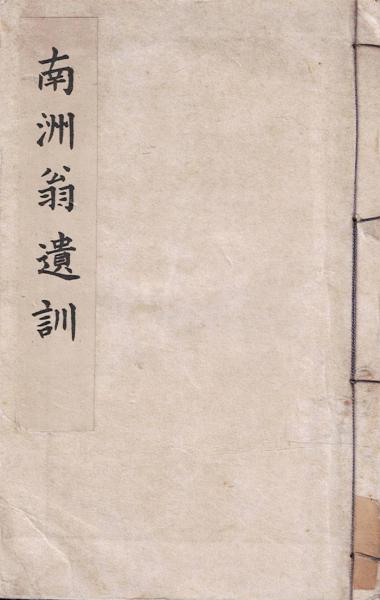 南洲翁遺訓